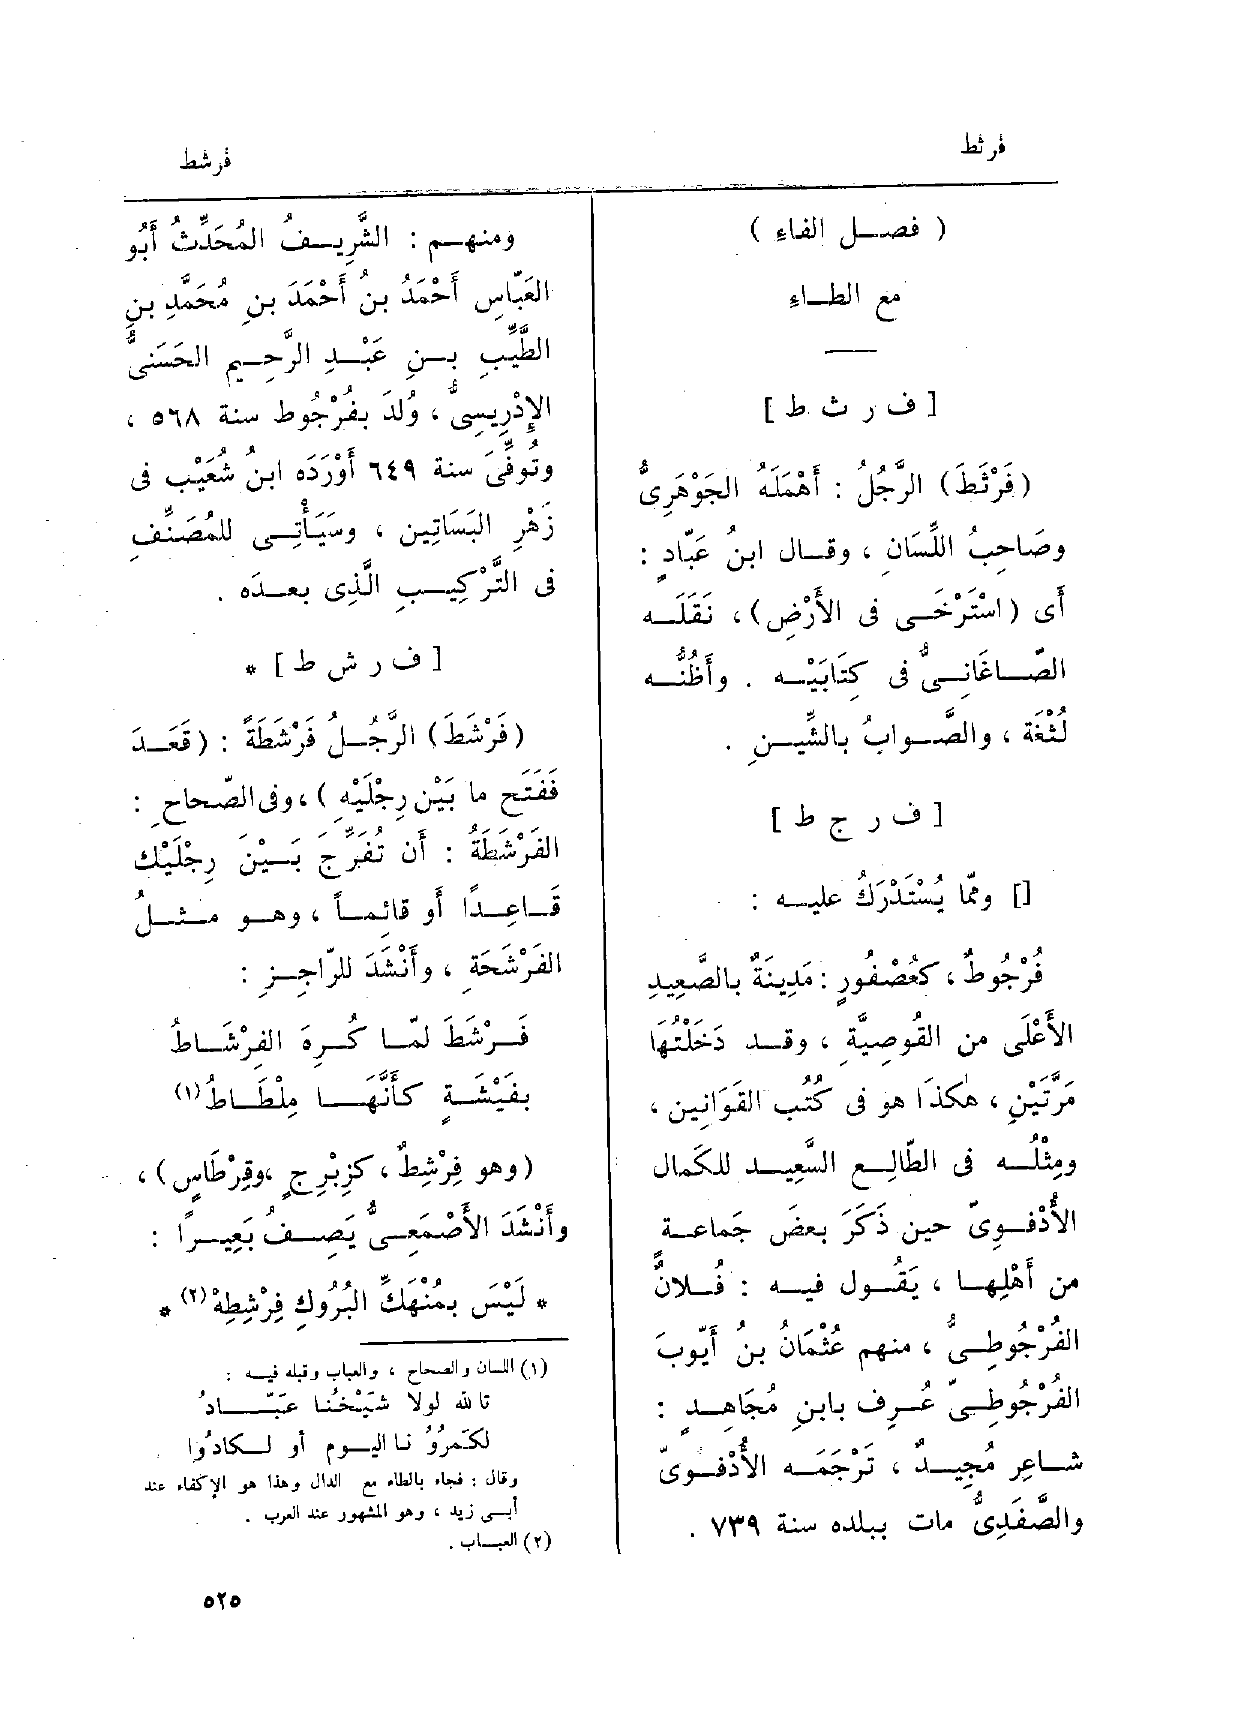 فرثط
فرشط
( فصـل الفاء )
مع الطـاء
[ ف ر ث ط ]
(فَرْثَطَ) الرَّجُلُ : أَهْمَلَهُ الجَوْهَرِىُّ
وصَاحِبُ اللِّسَانِ ، وقـال ابنُ عَبّادٍ :
أَى (اسْتَرْخَـى فى الأَرْضِ) ، نَقَلَـه
الصّـاغَانِـىُّ فى كِتَابَيْـه . وأَظُنُّـه
لُثْغَة ، والصَّـوابُ بالشِّيـنِ .
[ ف ر ج ط ]
[] وممّا يُسْتَدْرَكُ عليـه :
فُرْجُوطٌ ، كعُصْفُورٍ : مَدِينَةٌ بالصَّعِيدِ
الأَعْلَى من القُوصِيَّةِ ، وقـد دَخَلْتُها
مَرَّتَيْنِ ، هكذَا هو فى كُتُبِ القَوَانِينِ ،
ومِثْلُـه فى الطّالِـعِ السَّعِيـد للكَمال
الأُدْفُـوِىّ حين ذَكَرَ بعضَ جَماعـة
من أَهْلِهـا ، يَقُـول فيـه : فُـلانٌ
الفُرْجُوطِـىُّ ، منهم عُثْمَانُ بنُ أَيّوبَ
الفُرْجُوطِـىّ عُـرِف بابنِ مُجَاهِـدٍ :
شـاعِر مُجِيـدٌ ، تَرْجَمَـه الأُدْفُـوِىّ
والصَّفَدِىُّ مات ببلده سنة ٧٣٩ .
ومنهـم : الشَّرِيـفُ المُحَدِّثُ أَبُو
العَبّاسِ أَحْمَدُ بنُ أَحْمَدَ بنِ مُحَمَّدِ بنِ
الطَّيِّبِ بـنِ عَبْـدِ الرَّحِـيمِ الحَسَنىُّ
الإِدْرِيسِىُّ ، وُلدَ بفُرْجُوط سنة ٥٦٨ ،
وتُوفِّىَ سنة ٦٤٩ أَوْرَدَه ابنُ شُعَيْب فى
زَهْرِ البَسَاتِين ، وسَيَأْتِـى للمُصَنِّفِ
فى التَّرْكِيـبِ الَّذِى بعـدَه .
[ ف ر ش ط ] *
(فَرْشَطَ) الرَّجُـلُ فَرْشَطَةً : (قَعَـدَ
فَفَتَح ما بَيْن رِجْلَيْهِ ) ، وفى الصّحاحِ :
الفَرْشَطَةُ : أَن تُفَرِّجَ بَـيْنَ رِجْلَيْك
قَـاعِـدًا أَو قائِمـاً ، وهـو مـثـلُ
الفَرْشَحَةِ ، وأَنْشَدَ للرّاجِـزِ :
فَـرْشَطَ لمّـا كُـرِهَ الفِرْشَـاطُ
بفَيْشَـةٍ كأَنَّهَـا مِلْطَـاطُ(١)
(وهو فِرْشِطٌ ، كزِبْرِجٍ ،وقِرْطَاسٍ) ،
وأَنْشَدَ الأَصْمَعِـىُّ يَصِـفُ بَعِيـرًا :
* لَيْسَ بمُنْهَكِّ البُرُوكِ فِرْشِطِهْ(٢) *
(١) اللسان والصحاح ، والعباب وقبله فيـه :
تالله لولا شَيْخُنـا عَبّـادُ
لكَمَرُوُ نـا اليـوم أو لـكادُوا
وقال : فجاء بالطاء مع الدال وهذا هو الإكفاء عند
أبـى زيد ، وهو المشهور عند العرب .
(٢) العبـاب .
٥٢٥